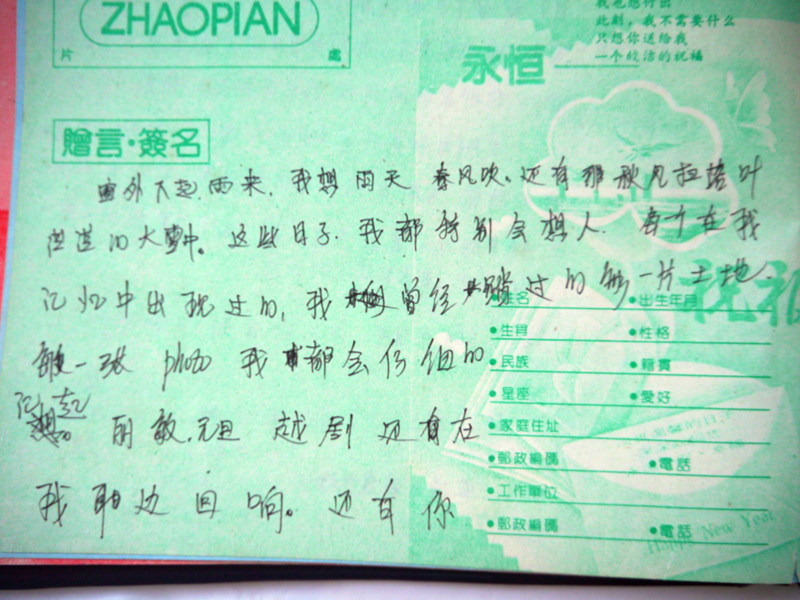 ZHAOPIAN
片 處
此刻，我不需要什么
只想你送给我
一个皎洁的祝福
永恒
贈言·簽名
窗外下起雨来，我想雨天 春风吹。还有那秋风拉落叶
的大雪中。这些日子，我都特别会想人。每个在我
记忆中出现过的，我曾经踏过的每一片土地
每一张 photo 我都会仔细的
记起
丽敏，元旦 越剧 还有在
我耳边回响。还有你
姓名 ●出生年月
●生肖 ●性格
●民族 ●籍貫
●星座 ●愛好
●家庭住址
●郵政編碼 ●電話
●工作單位
●郵政編碼 ●電話
Happy New Year